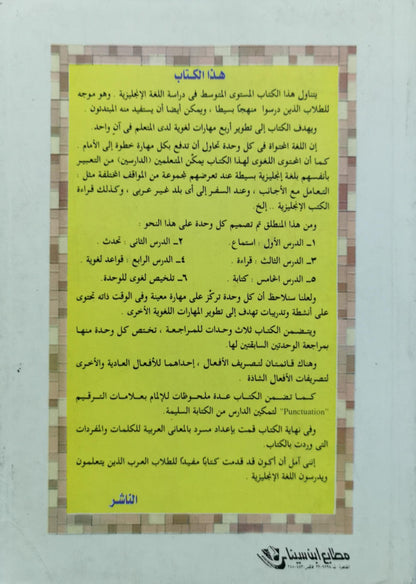 هذا الكتاب
يتناول هذا الكتاب المستوى المتوسط فى دراسة اللغة الإنجليزية . وهو موجه
للطلاب الذين درسوا منهجًا بسيطا ، ويمكن أيضا أن يستفيد منه المبتدئون .
ويهدف الكتاب إلى تطوير أربع مهارات لغوية لدى المتعلم فى آن واحد.
إن اللغة المحتواة فى كل وحدة تحاول أن تدفع بكل مهارة خطوة إلى الأمام .
كما أن المحتوى اللغوى لهذا الكتاب يمكّن المتعلمين (الدارسين) من التعبير
بأنفسهم بلغة إنجليزية بسيطة عند تعرضهم لمجموعة من المواقف المختلفة مثل :
التعامل مع الأجانب ، وعند السفر إلى أى بلد غير عربى ، وكذلك قراءة
الكتب الإنجليزية .. إلخ.
ومن هذا المنطلق تم تصميم كل وحدة على هذا النحو :
١ـ الدرس الأول : استماع . ٢ـ الدرس الثانى : تحدث .
٣ـ الدرس الثالث : قراءة . ٤ـ الدرس الرابع : قواعد لغوية .
٥ـ الدرس الخامس : كتابة . ٦ـ تلخيص لغوى للوحدة.
ولعلنا سنلاحظ أن كل وحدة تركّز على مهارة معينة وفى الوقت ذاته تحتوى
على أنشطة وتدريبات تهدف إلى تطوير المهارات اللغوية الأخرى .
ويتضمن الكتاب ثلاث وحدات للمراجعة ، تختص كل وحدة منها
بمراجعة الوحدتين السابقتين لها.
وهناك قائمتان لتصريف الأفعال ، إحداهما للأفعال العادية والأخرى
لتصريفات الأفعال الشاذة .
كما تضمن الكتاب عدة ملحوظات للإلمام بعلامات الترقيم
"Punctuation" لتمكين الدارس من الكتابة السليمة.
وفى نهاية الكتاب قمت بإعداد مسرد بالمعانى العربية للكلمات والمفردات
التى وردت بالكتاب.
إننى آمل أن أكون قد قدمت كتابًا مفيدًا للطلاب العرب الذين يتعلمون
ويدرسون اللغة الإنجليزية .
الناشر
مطابع ابن سينا